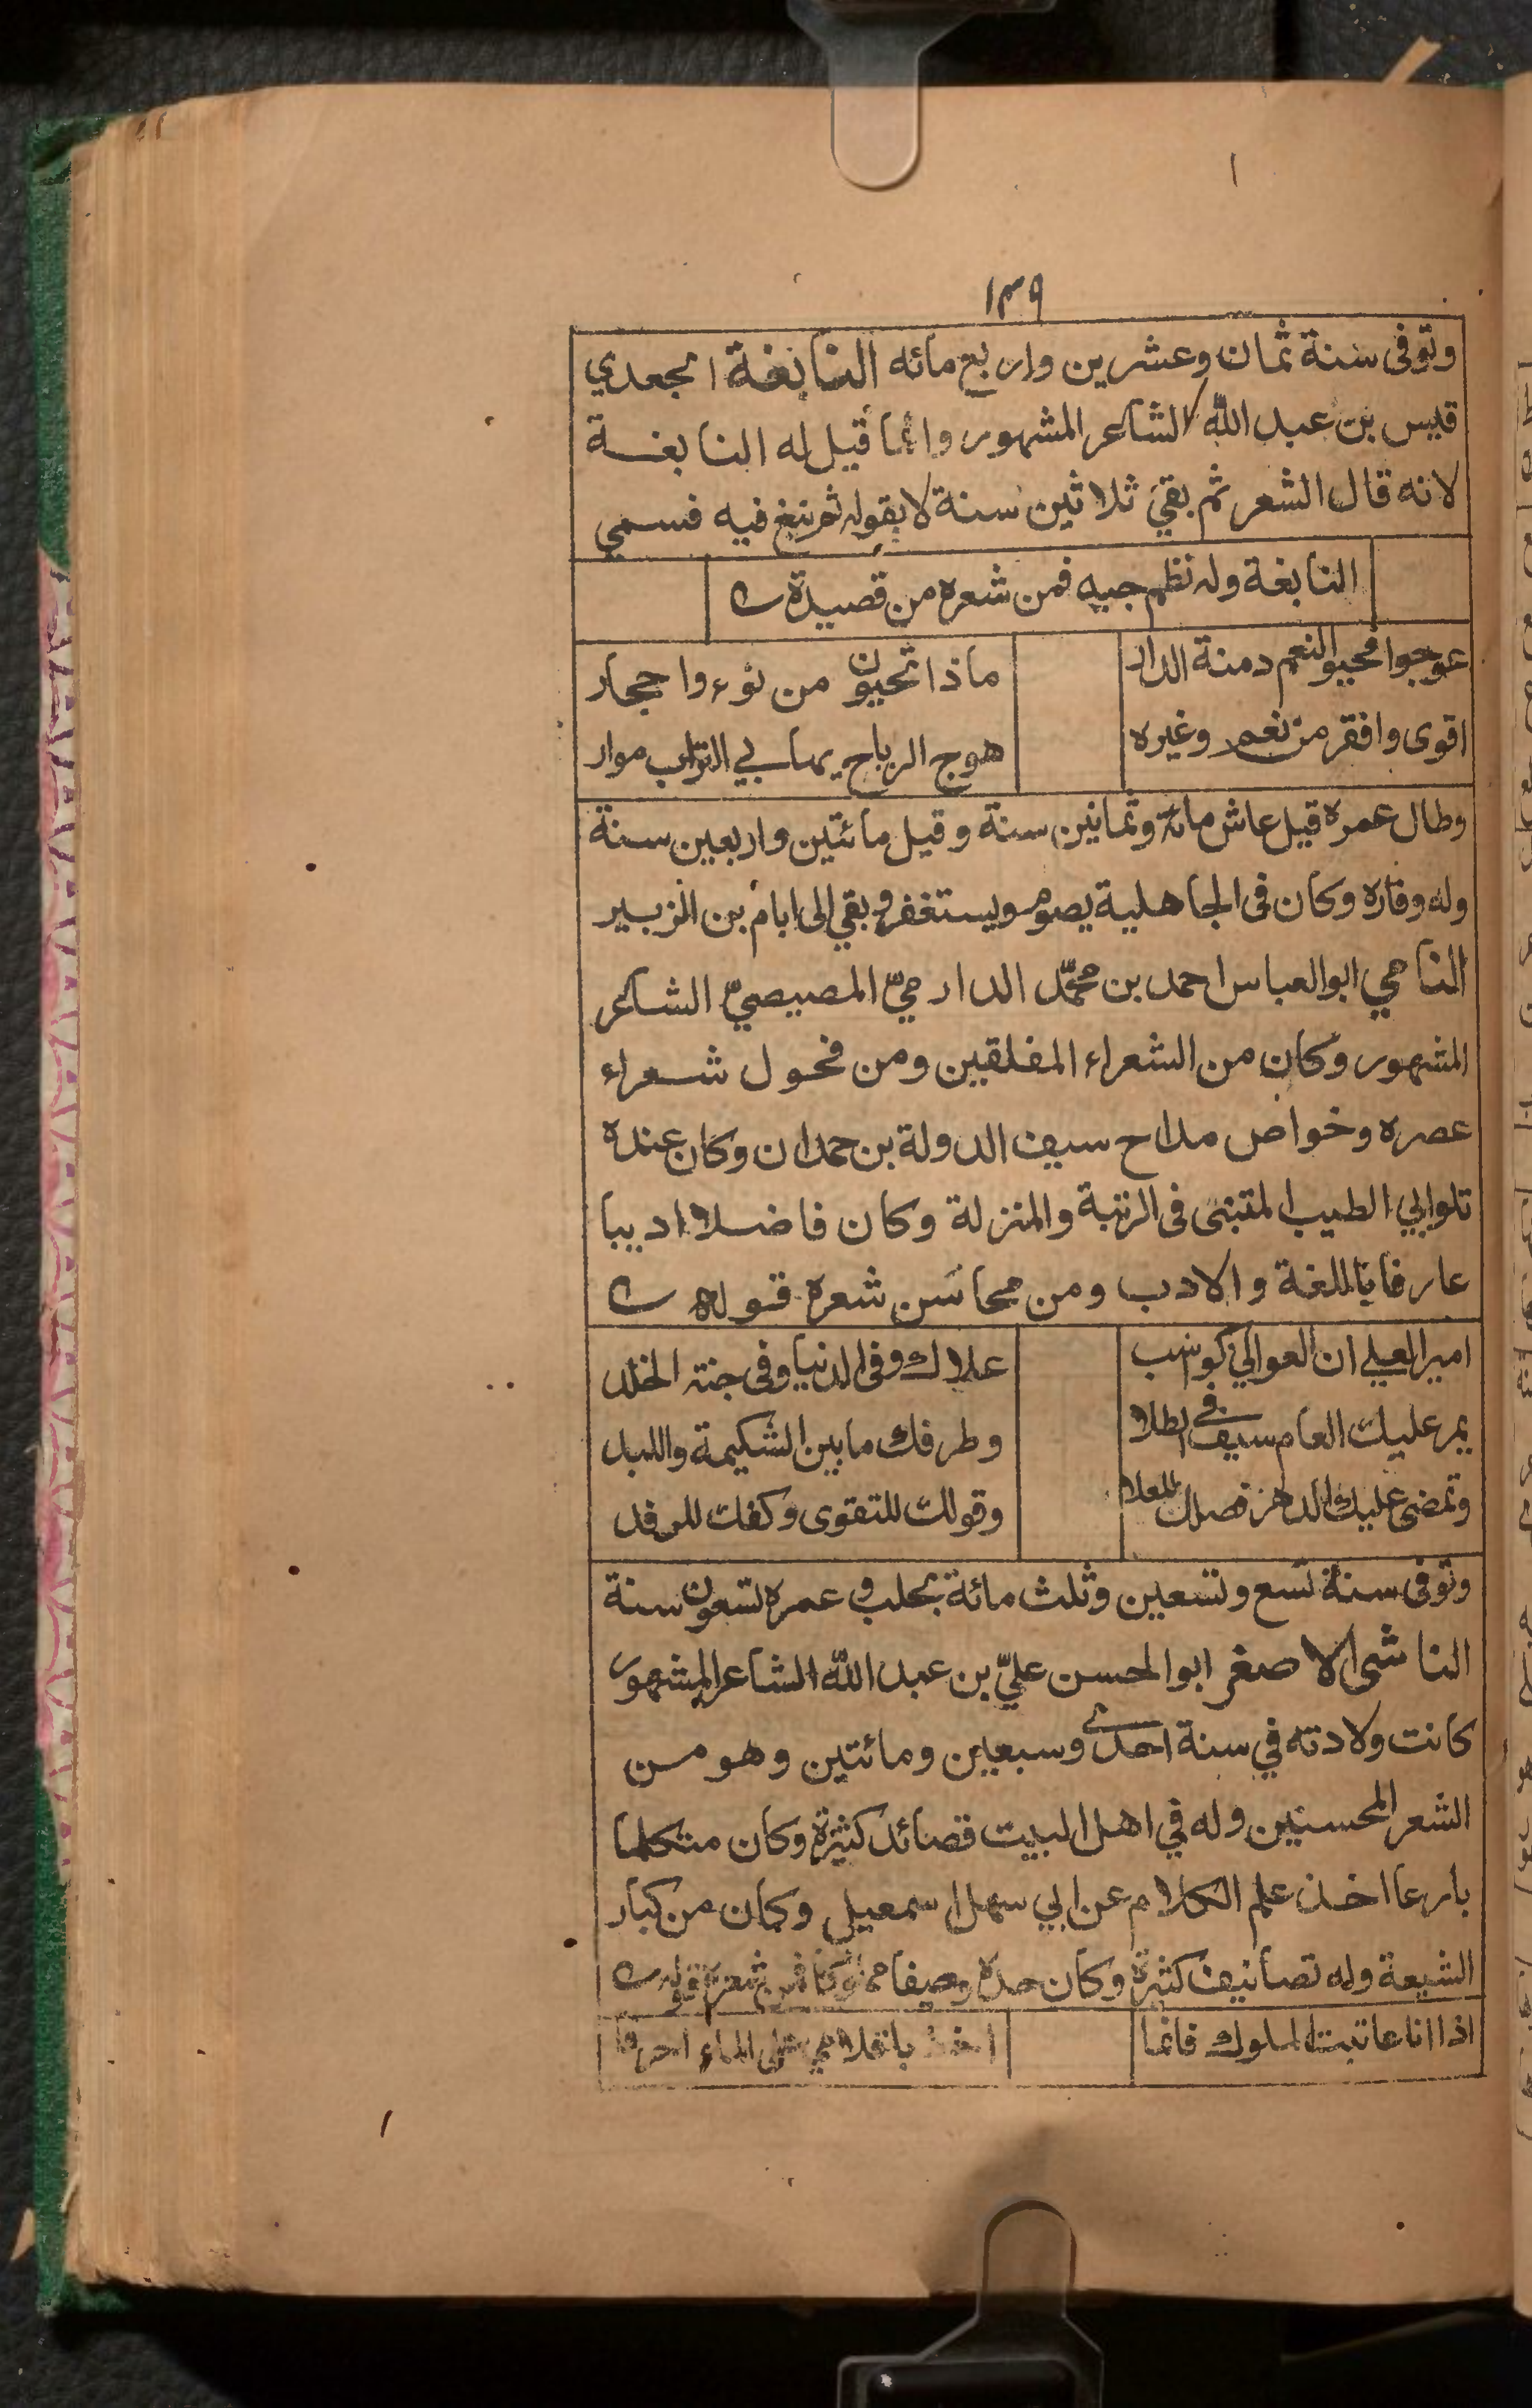 ١٣٩
وتوفى سنة ثمان وعشرين واربع مائه النابغة الجعدي
قيس بن عبد الله الشاعر المشهور وانما قيل له النابغة
لانه قال الشعر ثم بقي ثلاثين سنة لا يقوله ثم نبغ فيه فسمي
النابغة وله نظم جيد فمن شعره من قصيدة
عوجوا فحيوا لنعم دمنة الدار ماذا تحيون من نؤء واحجار
اقوى وافقر من نعم وغيره هوج الرياح بهابي التراب موار
وطال عمره قيل عاش مائة وثمانين سنة وقيل مائتين واربعين سنة
وله وفاده وكان فى الجاهلية يصوم ويستغفر وبقي الى ايام بن الزبير
النامي ابو العباس احمد بن محمّد الدارميّ المصيصيّ الشاعر
المشهور وكان من الشعراء المفلقين ومن فحول شعراء
عصره وخواص مداح سيف الدولة بن حمدان وكان عنده
تلو ابي الطيب المتبنى فى الرتبة والمنزلة وكان فاضلا اديبا
عارفا باللغة والادب ومن محاسن شعره قوله
امير العلي ان العوالي كواسب علاك وفى الدنيا وفى جنة الخلد
يمر عليك العام سيفك في الطلا وطرفك ما بين الشكيمة واللبد
وتمضى عليك الدهر فصلك للعلا وقولك للتقوى وكفك للرفد
وتوفى سنة تسع وتسعين وثلث مائة بحلب وعمره تسعون سنة
الناشى الاصغر ابو الحسن عليّ بن عبد الله الشاعر المشهور
كانت ولادته في سنة احدى وسبعين ومائتين وهو من
الشعر المحسنين وله في اهل البيت قصائد كثيرة وكان متكلما
بارعا اخذ علم الكلام عن ابي سهل اسمعيل وكان من كبار
الشيعة وله تصانيف كثيرة وكان جده وصيفا مملوكا فمن شعره قوله
اذا انا عاتبت الملوك فانما اخط باقلامي على الماء احرفا